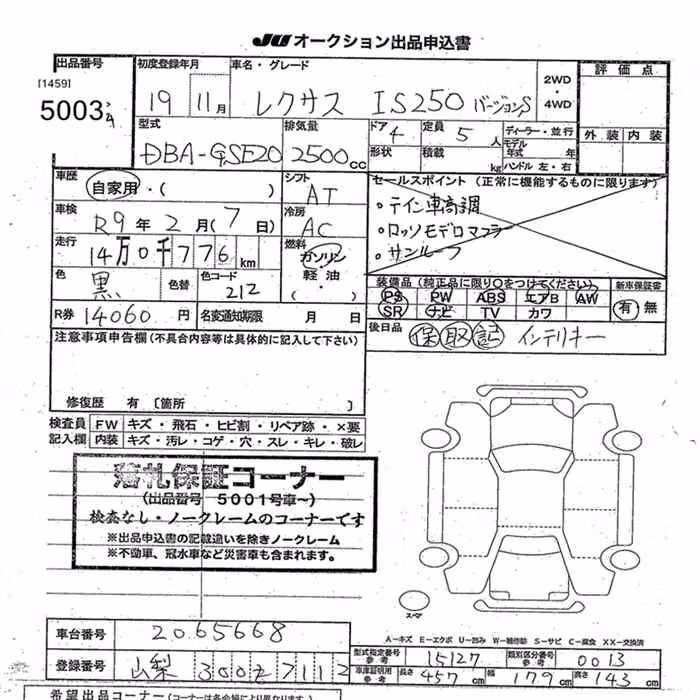 JU オークション出品申込書
出品番号
[1459]
5003
初度登録年月
19 11月
車名・グレード
レクサス IS250 バージョンS
2WD
・
4WD
評価点
外装 内装
型式
DBA-GSE20
排気量
2500cc
ドア 4
形状
定員 5人
積載 kg
ディーラー・並行
モデル年式 年
ハンドル 左・右
車歴
自家用・( )
シフト
AT
車検
R9年2月(7日)
冷房
AC
走行
14万0千776km
燃料
ガソリン
軽油・
( )
色
黒
色替
色コード
212
R券 14060円
名変通知期限 月 日
セールスポイント(正常に機能するものに限ります)
・テイン車高調
・ロッソモデロマフラー
・サンルーフ
装備品(純正品に限り○をつけてください)
PS PW ABS エアB AW
SR ナビ TV カワ
新車保証書
有 無
後日品 保 取 記 インテリキー
注意事項申告欄(不具合内容等は具体的に記入して下さい)
修復歴 有〔箇所 〕
検査員記入欄
FW キズ・飛石・ヒビ割・リペア跡・×要
内装 キズ・汚レ・コゲ・穴・スレ・キレ・破レ
落札保証コーナー
(出品番号 5001号車~)
検査なし・ノークレームのコーナーです
※出品申込書の記載違いを除きノークレーム
※不動車、冠水車など災害車も含まれます。
スペア
A−キズ E−エクボ U−凹み W−補修跡 S−サビ C−腐食 XX−交換済
車台番号 2065668
型式指定番号 参考 15127
類別区分番号 参考 0013
登録番号 山梨 300 そ 7112
車庫証明用 参考 長さ 457cm 幅 179cm 高さ 143cm
希望出品コーナー